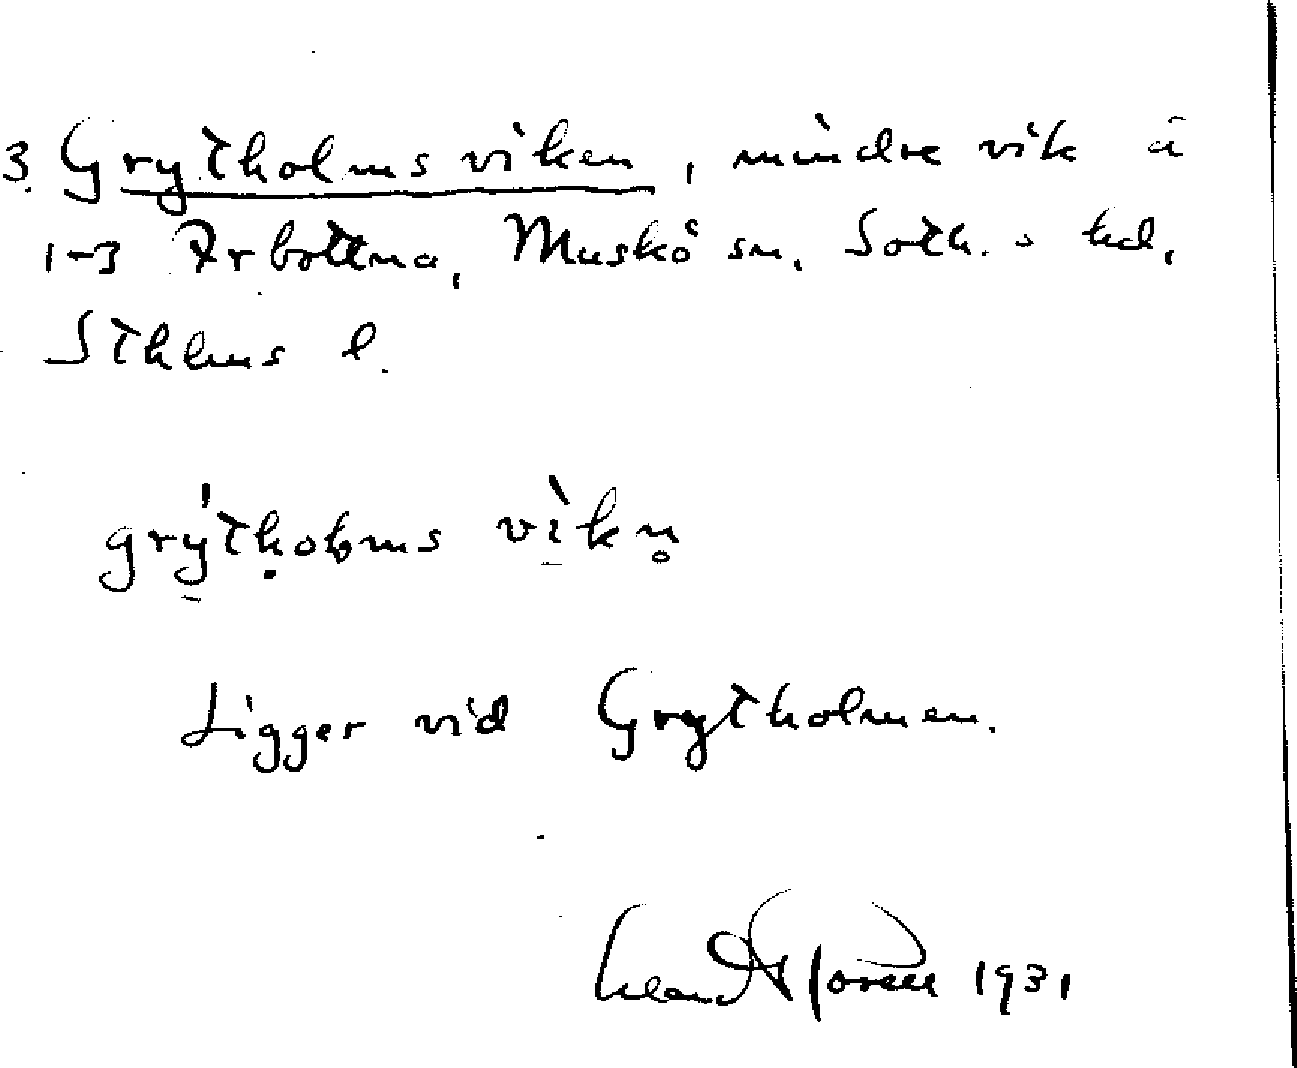 3. Grytholmsviken, mindre vik å
1-3 Arbottna, Muskö sn. Soth. s hd,
Sthlms l.
grýtholms vìkn̥
Ligger vid Grytholmen.
1931